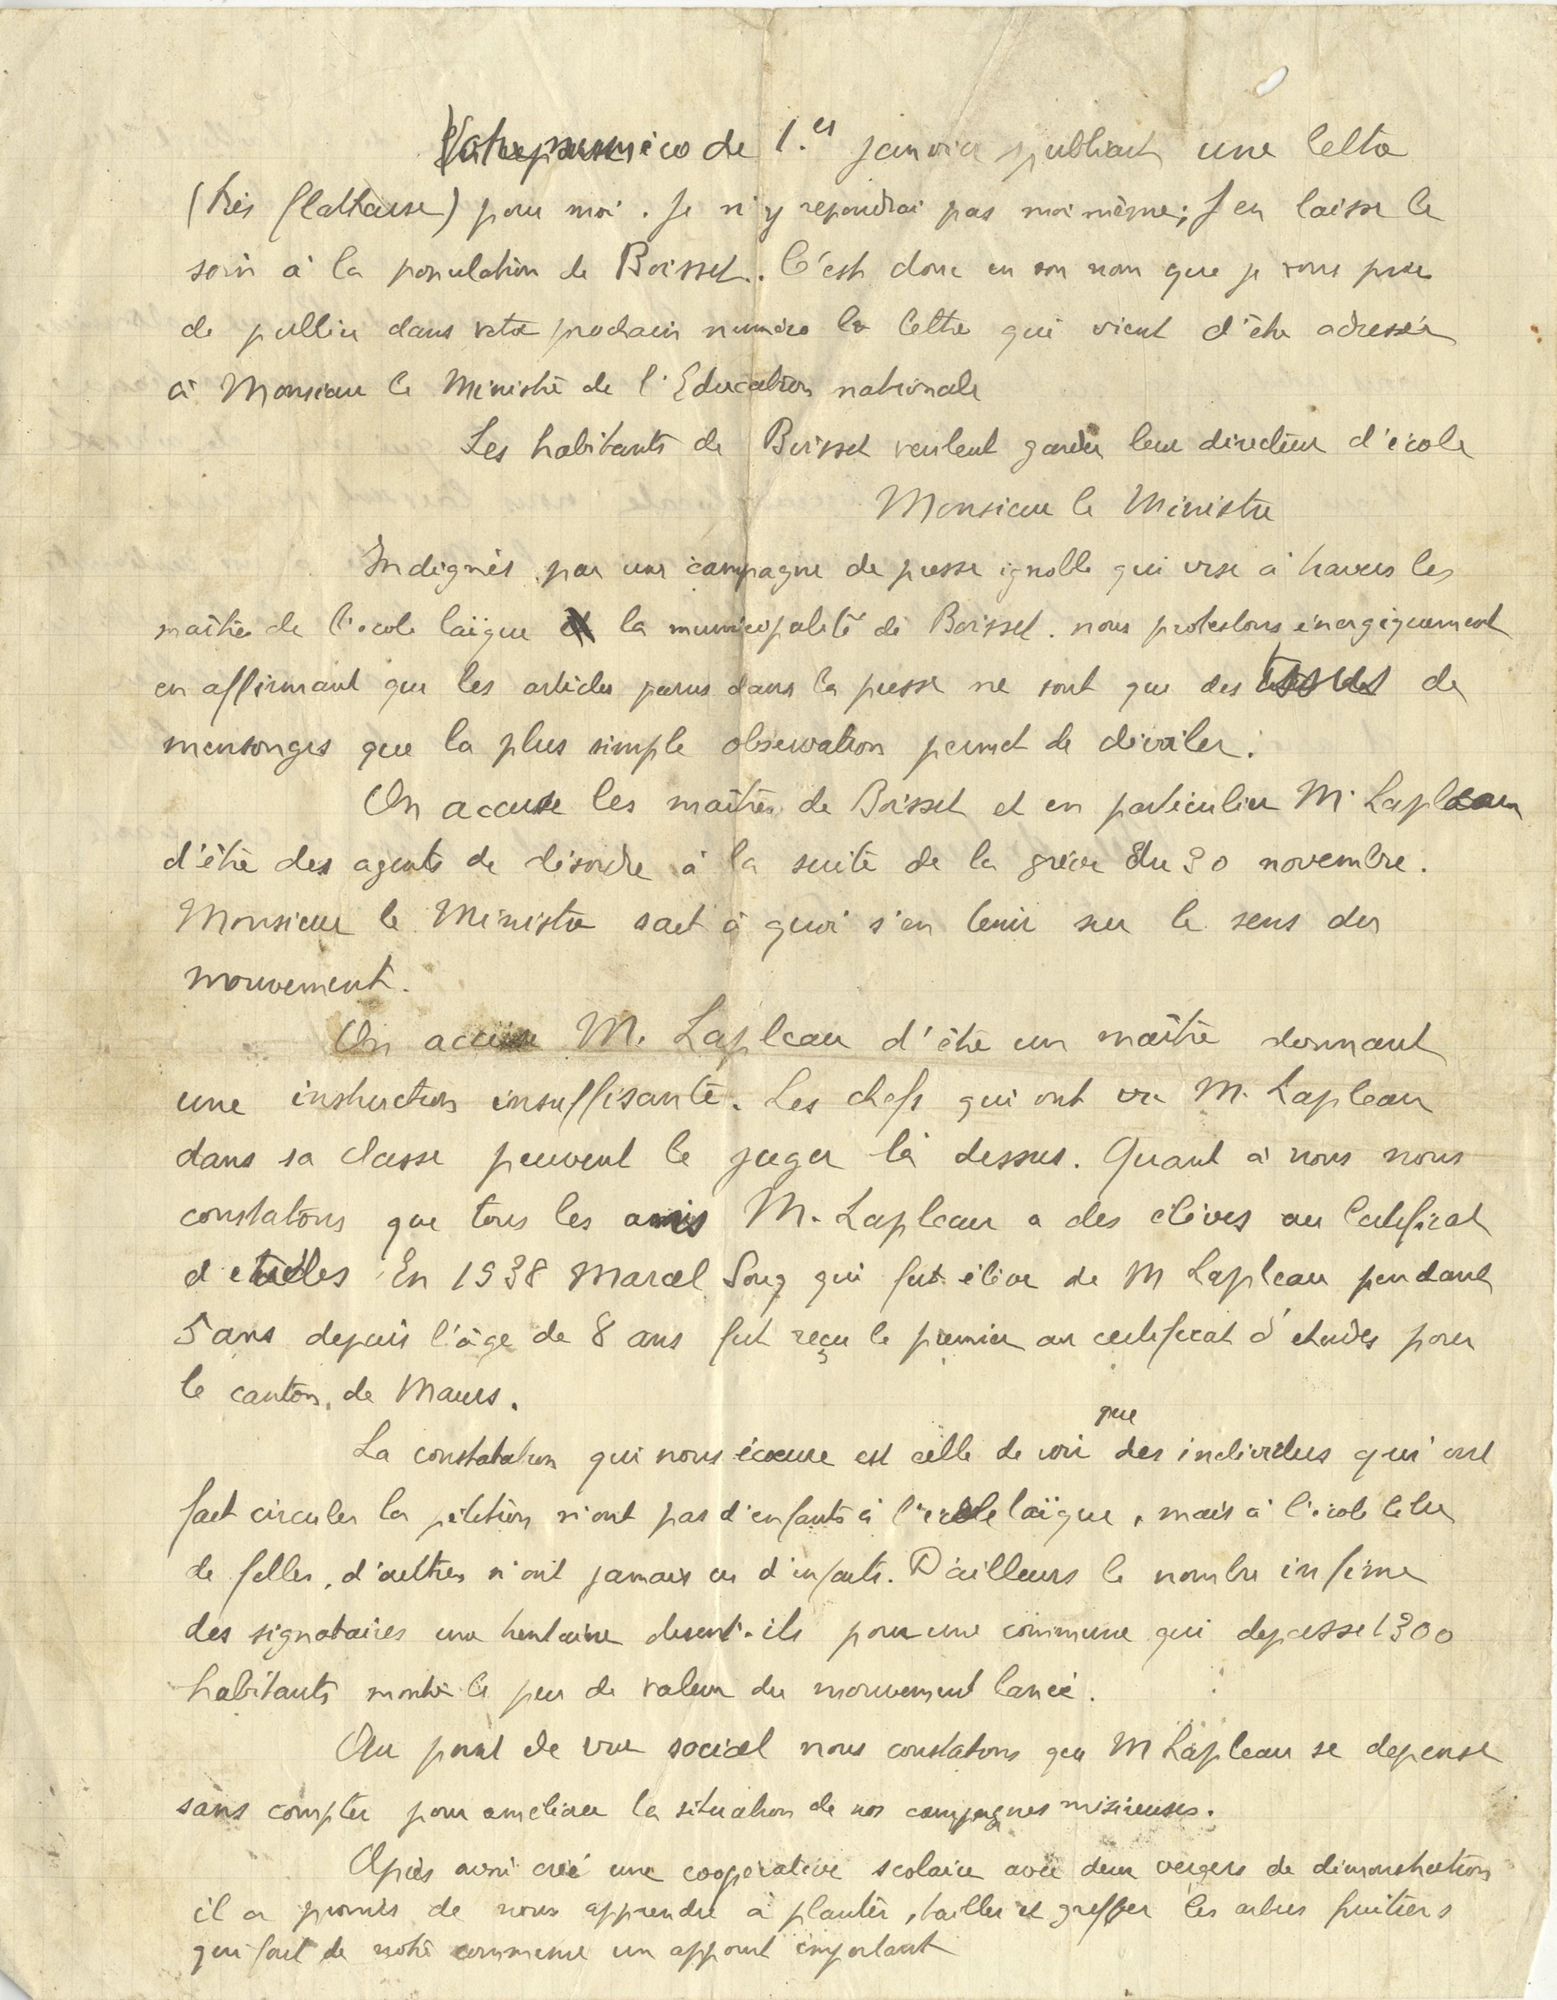 Votre numéro de 1.er janvier publiait une lettre
(très flatteuse) pour moi. Je n'y répondrai pas moi même; J'en laisse le
soin à la population de Boisset. C'est donc en son nom que je vous prie
de publier dans votre prochain numéro la lettre qui vient d'être adressée
à Monsieur le Ministre de l'Education nationale
Les habitants de Boisset veulent garder leur directeur d'école
Monsieur le Ministre
Indignés par une campagne de presse ignoble qui vise à travers les
maîtres de l'école laïque la municipalité de Boisset. nous protestons énergiquement
en affirmant que les articles parus dans la presse ne sont que des tissus de
mensonges que la plus simple observation permet de dévoiler.
On accuse les maîtres de Boisset et en particulier M. Lapleau
d'être des agents de désordre à la suite de la grève du 30 novembre.
Monsieur le Ministre sait à quoi s'en tenir sur le sens du
mouvement.
On accuse M. Lapleau d'être un maître donnant
une instruction insuffisante. Les chefs qui ont vu M. Lapleau
dans sa classe peuvent le juger là dessus. Quant à nous nous
constatons que tous les ans M. Lapleau a des élèves au certificat
d'etudes En 1938 Marcel qui fut élève de M Lapleau pendant
5 ans depuis l'âge de 8 ans fut reçu le premier au certificat d'etudes pour
le canton de Maurs.
La constatation qui nous écœure est celle de voir que des individus qui ont
fait circuler la pétition n'ont pas d'enfants à l'école laïque, mais à l'école libre
de filles, d'autres n'ont jamais eu d'enfants. D'ailleurs le nombre infime
des signataires une trentaine disent-ils pour une commune qui depasse 1300
habitants montre le peu de valeur du mouvement lancé.
Au point de vue social nous constatons que M Lapleau se depense
sans compter pour améliorer la situation de nos campagnes miséreuses.
Après avoir créé une coopérative scolaire avec deux vergers de démonstration
il a promis de nous apprendre à planter, tailler et greffer les arbres fruitiers
qui font de notre commune un appoint important